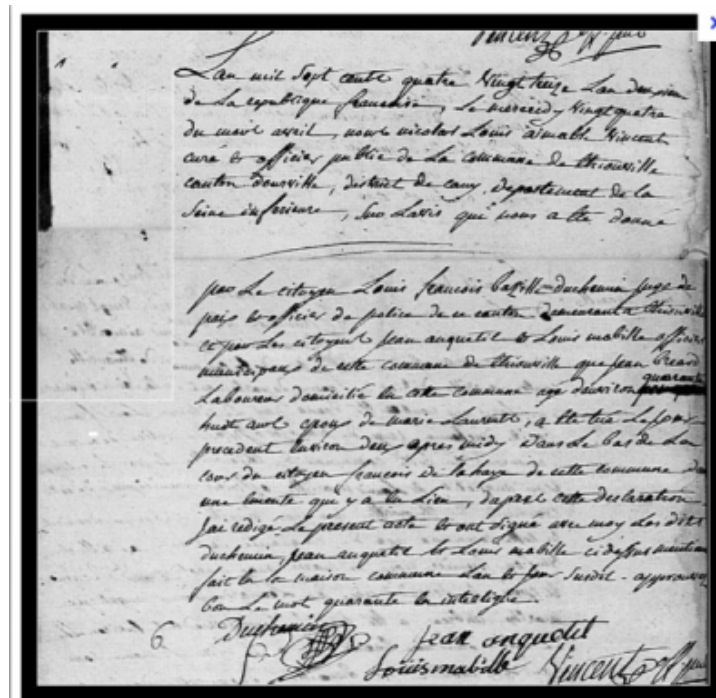 Vincent off. publ
Lan mil sept cents quatre vingt treize Lan deuxieme
de La republique francaise, Le mercredy vingt quatre
du mois avril, nous nicolas Louis aimable Vincent
curé & officier public de La commune de thiouville
canton dourville, district de cany, departement de la
Seine inferieure, sur Lavis qui nous a ete donné
par Le citoyen Louis francois bazille duchemin juge de
paix & officier de police de ce canton demeurant a thiouville
et par Les citoyens jean anquetil & Louis mabille officiers
municipaux de cette commune de thiouville que jean Breard
Laboureur domicilié en cette commune agé denviron quarante
huit ans epoux de marie Laurent, a ete tué Le jour
precedent environ deux apres midy dans Le bas de La
cour du citoyen francois de la haye de cette commune dans
une emeute qui y a eu Lieu, dapres cette declaration
jai redigé Le present acte & ont signé avec moy Les dits
duchemin, jean anquetil & Louis mabille ci dessus mentionnés
fait en La maison commune Lan & jour susdit - approuvé
bon Le mot quarante en interligne.
Duchemin
jean anquetil
Louis mabille Vincent off. publ